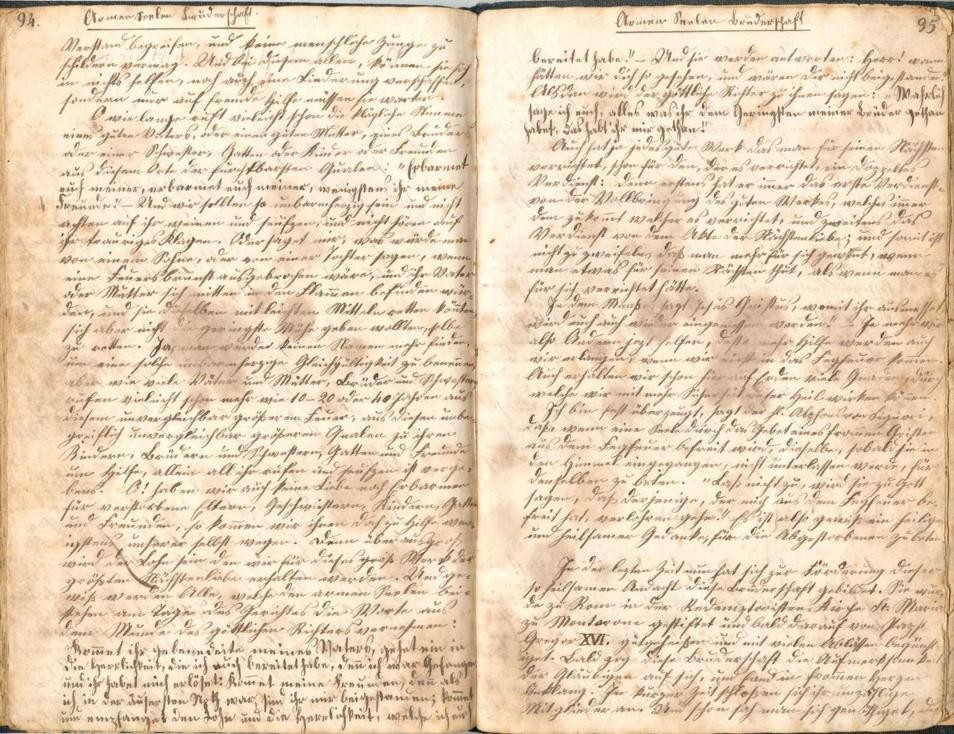 94. Armen Seelen Bruderschaft.
Verstand begreifen, und keine menschliche Zunge zu
schildern vermag. Und bei diesem allen, können sie sich
in nichts helfen, noch auch eine Linderung verschaffen,
sondern nur auf fremde Hilfe müssen sie warten.
O wie lange ruft vieleicht schon die klägliche Stimme
eines guten Vaters, oder einer guten Mutter, eines Bruders
oder einer Schwester, Gatten oder Kinder oder Freunden
aus diesem Orte der furchtbarsten Qualen: "Erbarmet
euch meiner, erbarmet euch meiner, wenigstens ihr meine
Freunde!" Und wir sollten so unbarmherzig sein und nicht
achten auf ihr weinen und seufzen, und nicht hören auf
ihr trauriges Klagen. Oder saget mir, was würde man
von einem Sohne, oder von einer Tochter sagen, wenn
eine Feuersbrunst ausgebrochen wäre, und ihr Vater
oder Mutter sich mitten in den Flammen befinden wür-
den, und sie dieselben mit leichten Mitteln retten könnten
sich aber nicht die geringste Mühe geben wollten, selbe
zu retten. Ja, man würde keinen Namen mehr finden,
um eine solche unbarmherzige Gleichgültigkeit zu benennen,
aber wie viele Väter und Mütter, Brüder und Schwestern
rufen vieleicht schon mehr wie 10-20 oder 40 Jahren aus
diesem unvergleichbar größeren Feuer, aus diesen unbe-
greiflich unvergleichbar größeren Qualen zu ihren
Kindern, Brüdern und Schwestern, Gatten und Freunde
um Hilfe, allein all ihr rufen und seufzen ist verge-
bens. O! haben wir auch keine Liebe noch Erbarmen
für verstorbene Eltern, Geschwistern, Kindern, Gatten
und Freunden, so kommen wir ihnen doch zu Hilfe wen-
igstens unserer selbst wegen. Denn überaus groß
wird der Lohn sein den wir für dieses große Werk der
größten Nächstenliebe erhalten werden. Und ge-
wiß werden Alle, welche den armen Seelen bei-
stehen am Tage des Gerichtes die Worte aus
dem Munde des göttlichen Richters vernehmen:
"Kommet ihr gebenedeite meines Vaters, gehet ein in
die Herrlichkeit, die ich euch bereitet habe, denn ich war Gefangen
und ihr habet mich erlöset: Kommet meine Freunden, denn als
ich in der äußersten Noth war, sind ihr mir beigestanden; kommet
und empfanget den Lohn und die Herrlichkeit, welche ich euch
Armen Seelen Bruderschaft 95
bereitet habe!" – Und sie werden antworten: Herr! wann
hätten wir dich so gesehen, und wären dir nicht beigestanden
Alsdan wird der göttliche Richter zu ihnen sagen: "Wahrlich
sage ich euch, alles was ihr dem Geringsten meiner Brüder gethan
habet, das habt ihr mir gethan!"
Auch hat ja jedes gute Werk das man für seinen Nächsten
verrichtet, schon für den, der es verrichtet, ein doppeltes
Verdienst: denn erstens hat er immer das erste Verdienst
von der Vollbringung des guten Werkes, welches immer
dem zu kommt welcher es verrichtet, und zweitens das
Verdienst von dem Akte der Nächstenliebe; und somit ist
nicht zu zweifeln, daß man mehr für sich gewinnt, wenn
man etwas für seinen Nächsten thut, als wenn man es
für sich verrichtet hätte.
In dem Maaß, sagt Jesus Christus, womit ihr ausmesset
wird euch auch wieder eingemessen werden. – Je mehr wir
also Andern jezt helfen, desto mehr Hilfe werden auch
wir erlangen, wenn wir einst in das Fegfeuer kommen.
Auch erhalten wir schon hier auf Erden viele Gnaden, durch
welche wir mit mehr Sicherheit unser Heil wirken können.
Ich bin fest überzeugt, sagt der hl. Alphons von Liguori,
daß, wenn eine Seele durch das Gebet eines frommen Christen
aus dem Fegfeuer befreit wird, dieselbe, sobald sie in
den Himmel eingegangen, nicht unterlassen werde, für
denselben zu beten. "Laß nicht zu, wird sie zu Gott
sagen, daß derjenige, der mich aus dem Fegfeuer be-
freit hat, verloren gehe!" Es ist also gewiß ein heiliger
und heilsamer Gedanke, für die Abgestorbenen zu beten
In der lezten Zeit nun hat sich zur Förderung dieser
so heilsamen Andacht diese Bruderschaft gebildet. Sie wur-
de zu Rom in der Redemptoristen Kirche St. Maria
zu Monterone gestiftet und bald darauf von Papst
Gregor XVI. gutgeheißen und mit vielen Ablässen begünst-
iget. Bald zog diese Bruderschaft die Aufmerksamkeit
der Gläubigen auf sich, und fand in frommen Herzen
Anklang. In kurzer Zeit schlossen sich ihr unzählige
Mitglieder an. Und schon sah man sich genöthiget, die